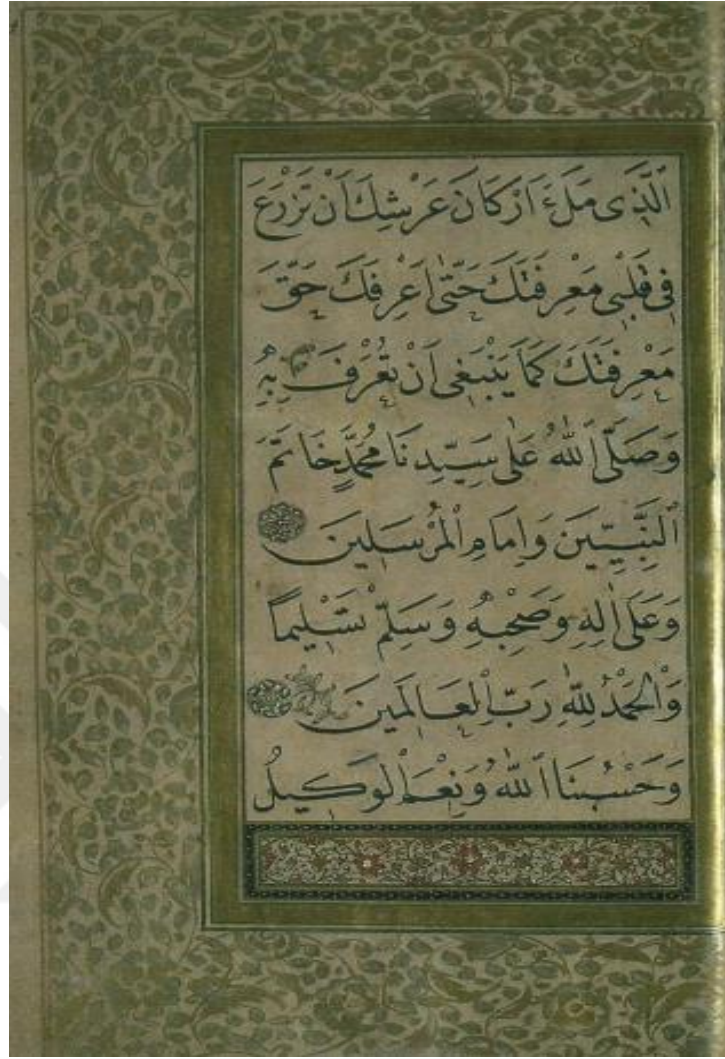 اَلَّذِى مَلَءَ اَرْكَانَ عَرْشِكَ اَنْ تَزْرَعَ
فِى قَلْبِى مَعْرِفَتَكَ حَتّٰى اَعْرِفَكَ حَقَّ
مَعْرِفَتِكَ كَمَا يَنْبَغِى اَنْ تُعْرَفَ بِهِ
وَصَلَّى اللّٰهُ عَلٰى سَيِّدِنَا مُحَمَّدٍ خَاتَمِ
النَّبِيِّينَ وَاِمَامِ الْمُرْسَلِينَ
وَعَلٰى اٰلِهِ وَصَحْبِهِ وَسَلِّمْ تَسْلِيماً
وَالْحَمْدُ لِلّٰهِ رَبِّ الْعَالَمِينَ
وَحَسْبُنَا اللّٰهُ وَنِعْمَ الْوَكِيلُ